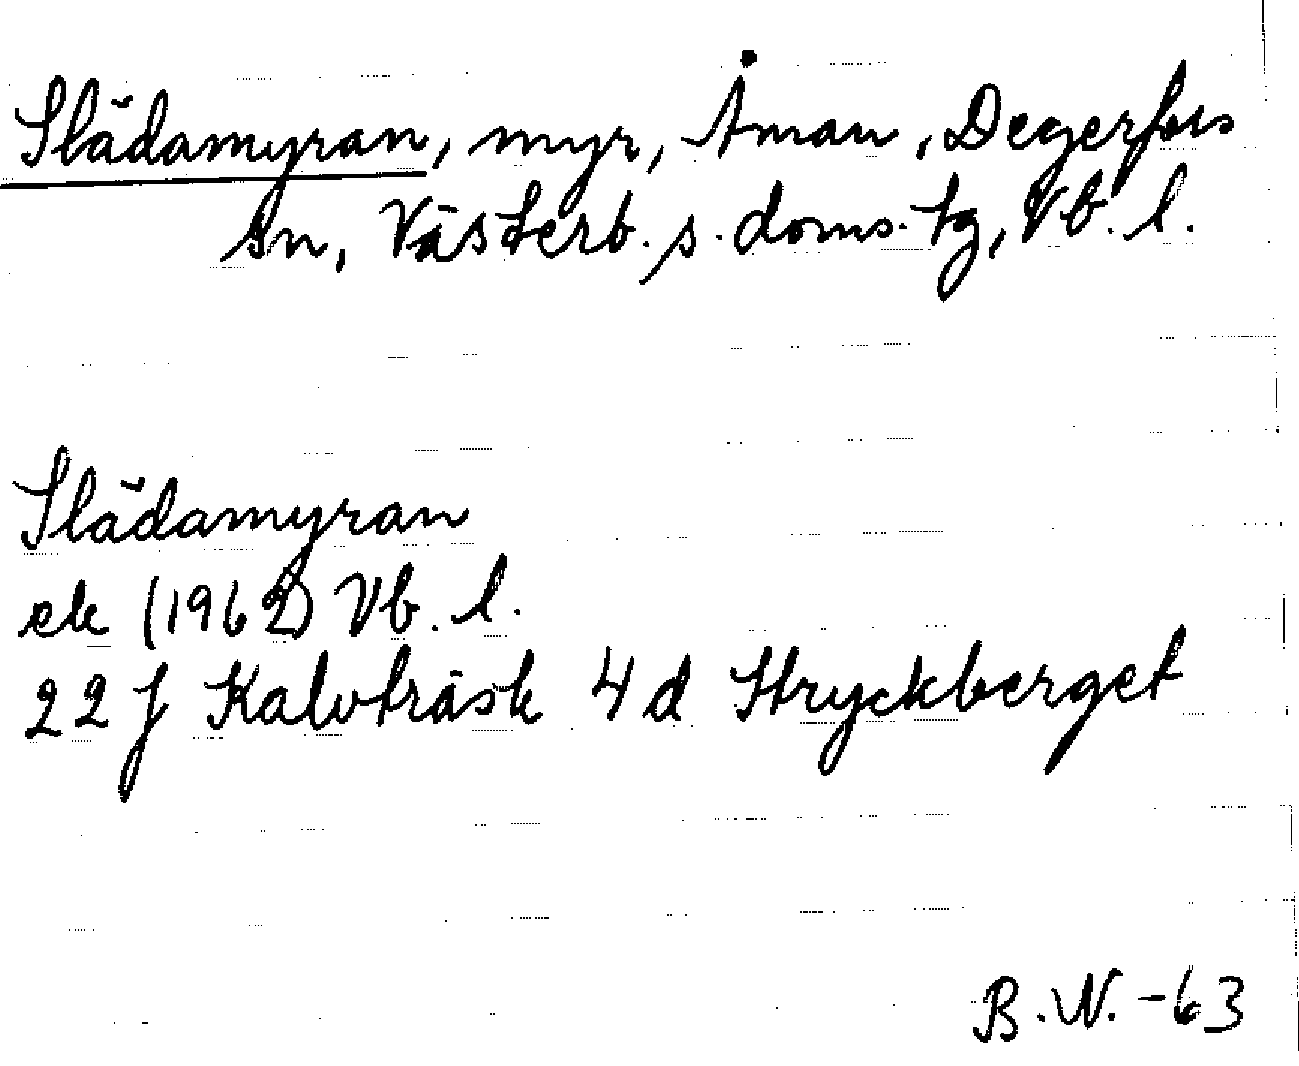 Slädamyran, myr, Åman, Degerfors
sn, Västerb. s. doms. tg, Vb. l.
Slädamyran
ek (1962) Vb. l.
22 J Kalvträsk 4 d Stryckberget
B.N. -63